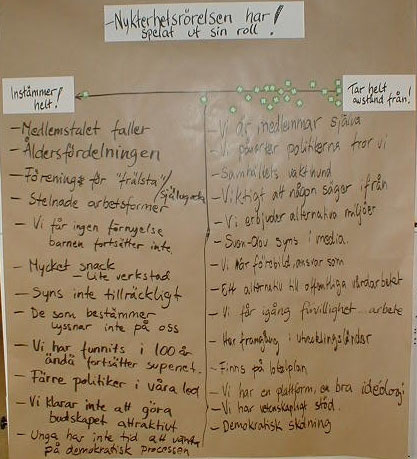 Nykterhetsrörelsen har
spelat ut sin roll!
Instämmer
helt!
Tar helt
avstånd från!
– Medlemstalet faller
– Åldersfördelningen
– Förening för "frälsta"/
självgoda
– Stelnade arbetsformer
– Vi får ingen förnyelse
barnen fortsätter inte
– Mycket snack
– Lite verkstad
– Syns inte tillräckligt
– De som bestämmer
lyssnar inte på oss
– Vi har funnits i 100 år
ändå fortsätter superiet.
– Färre politiker i våra led
– Vi klarar inte att göra
budskapet attraktivt
– Unga har inte tid att vänta
på demokratisk processen
– Vi är medlemmar själva
– Vi påverkar politikerna tror vi
– Samhällets väktare
– Viktigt att någon säger ifrån
– Vi erbjuder alternativa miljöer
– syns i media.
– Vi förebild, ansvar som
– Ett alternativ till offentliga vårdarbetet
– Vi får igång frivillighet...arbete
– Har framgång i utvecklingsländer
– Finns på lokalplan
– Vi har en plattform, en bra ideologi
– Vi har vetenskapligt stöd.
– Demokratisk skolning